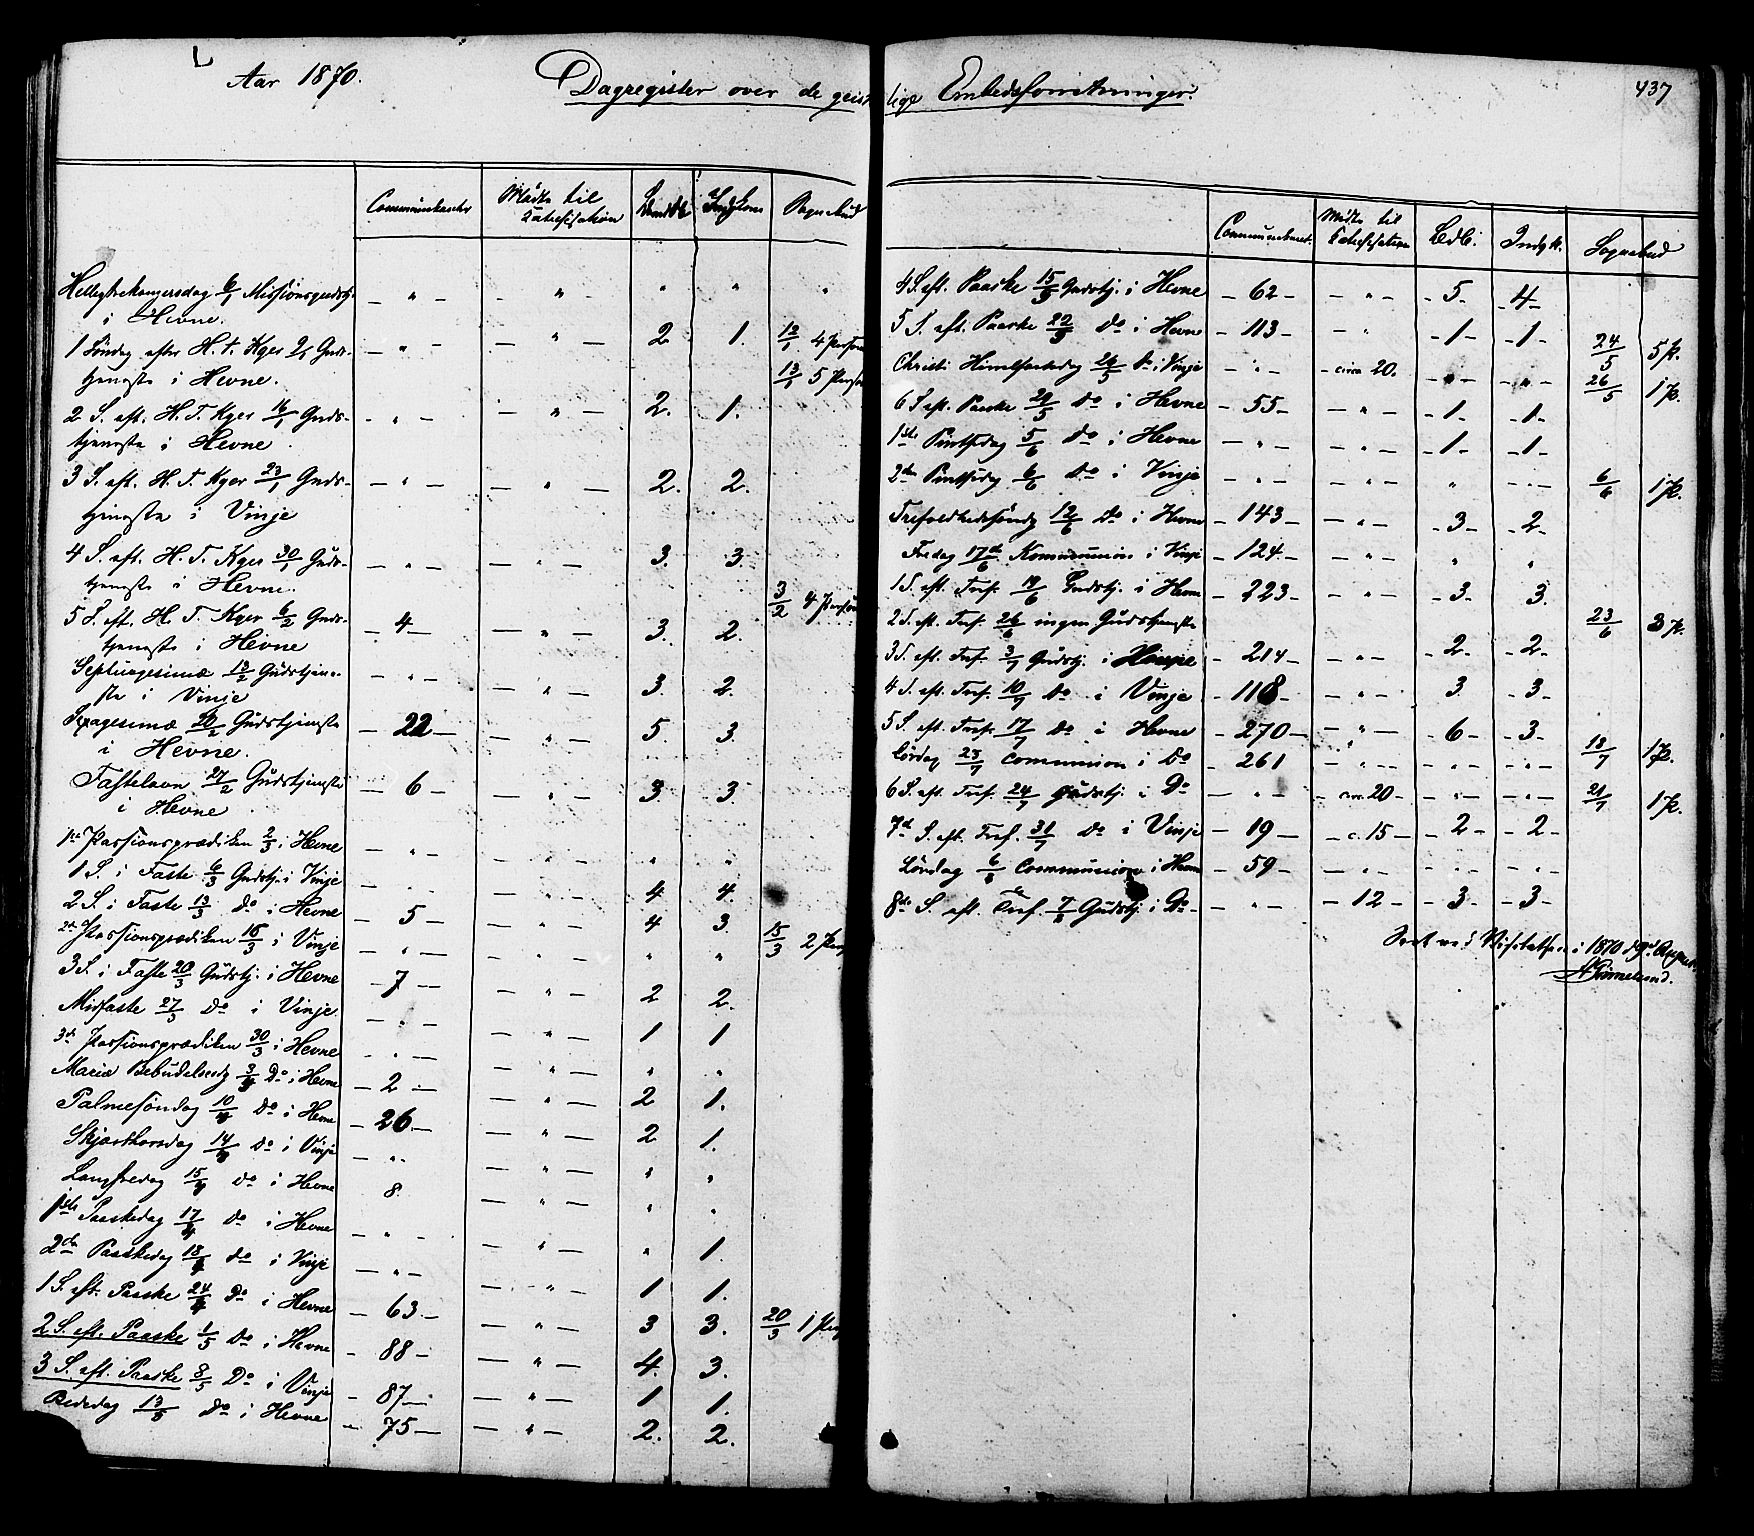 Aar 1870.
Dagregister over de geistlige Embedsforretninger.
437
Communikanter
Mødte til Catechisation
Sognebud
Helligtrekongersdag 6/1 Missionsgudstj. — " — — " — " " "
i Hevne.
1 Søndag efter H. t. Kger 9/1 Guds- — " — — " — 2. 1. 12/1 4 Person
tjeneste i Hevne. 13/1 5 Person
2 S. eft. H. T. Kger 16/1 Guds- — " — — " — 2. 1.
tjeneste i Hevne.
3 S. eft. H. T. Kger 23/1 Guds- — " — — " — 2. 2.
tjeneste i Vinje
4 S. eft. H. T. Kger 30/1 Guds- — " — — " — 3. 3.
tjeneste i Hevne.
5 S. eft. H. T. Kger 6/2 Guds- — 4 — — " — 3. 2. 3/2 4 Person
tjeneste i Hevne
Septuagesimæ 13/2 Gudstjene- — " — — " — 3. 2.
ste i Vinje
Sexagesimæ 20/2 Gudstjeneste — 22 — — " — 5. 3.
i Hevne.
Fastelavn 27/2 Gudstjeneste — 6 — — " — 3. 3.
i Hevne
1ste Passionsprædiken 2/3 i Hevne — " — — " — " "
1 S. i Faste 6/3 Gudstj. i Vinje — " — — " — 4 4.
2 S. i Faste 13/3 Do i Hevne — 5 — — " — 4 3.
2den Passionsprædiken 16/3 i Vinje — " — — " — " " 15/3 2 Pers
3 S. i Faste 20/3 Gudstj. i Hevne — 7 — — " — 2 2.
Midfaste 27/3 Do i Vinje — " — — " — 1 1
3die Passionsprædiken 30/3 i Hevne — " — — " — " "
Mariæ Bebudelsesdg 3/4 Do i Hevne — 2 — — " — 2 1.
Palmesøndag 10/4 Do i Hevne — 26. — — " — 2 1.
Skjærthorsdag 14/4 Do i Vinje — " — — " — " "
Langfredag 15/4 Do i Hevne 8. — " — " "
1ste Paaskedag 17/4 Do i Hevne — " — — " — " 1.
2den Paaskedag 18/4 Do i Vinje — " — — " — 1 1.
1 S. eft. Paaske 24/4 Do i Hevne — 63 — — " — 3 3. 20/3 1 Pers
2 S. eft. Paaske 1/5 Do i Hevne — 88 — — " — 4. 3.
3 S. eft. Paaske 8/5 Do i Vinje — 87 — — " — 1 1.
Bededag 13/5 Do i Hevne — 75 — — " — 2. 2.
Communikant.
Mødte til Catechisation
Indgk.
Sognebud
4 S. eft. Paaske 15/5 Gudstj. i Hevne — 62 — — " — — 5 — — 4 —
5 S. eft. Paaske 22/5 Do i Hevne — 113 — — " — — 1 — — 1 — 24/5 5 P.
Christi Himmelfartsdag 26/5 Do i Vinje — " — — circa 20. — " — — " — 26/5 1 P.
6 S. eft. Paaske 29/5 Do i Hevne — 55 — — " — — 1 — — 1 —
1ste Pintsedag 5/6 Do i Hevne — " — — " — — 1 — — 1 —
2den Pintsedag 6/6 Do i Vinje — " — — " — " — " — 6/6 1 P.
Trefoldhedssøndg 12/6 Do i Hevne — 143 — — " — — 3 — — 2 —
Fredag 17de/6 Kommunion i Vinje — 124 — — " — " "
1 S. eft. Tref. 19/6 Gudstj. i Hevne — 223 — — " — — 3 — 3.
2 S. eft. Tref. 26/6 ingen Gudstjeneste 23/6 3 P.
3 S. eft. Tref. 3/7 Gudstj. i Hevne — 214 — — " — — 2 — — 2 —
4 S. eft. Tref. 10/7 Do i Vinje — 118 — — " — 3. — 3 —
5 S. eft. Tref. 17/7 Do i Hevne — 270 — — " — — 6 — — 3 —
Lørdag 23/7 Communion i Do — 261 — " — — " — — " — 18/7 1 P.
6 S. eft. Tref. 24/7 Gudstj. i Do — " — — circ. 20 — — " — — " — 21/7 1 P.
7de S. eft. Tref. 31/7 Do i Vinje — 19 — — c. 15 — — 2 — — 2 —
Lørdag 6/8 Communion i Hevne — 59 — — " — — " — — " —
8de S. eft. Tref. 7/8 Gudstj. i Do — — " — — 12 — — 3 — — 3 —
Seet ved Visitatsen i 1870 d 9de August